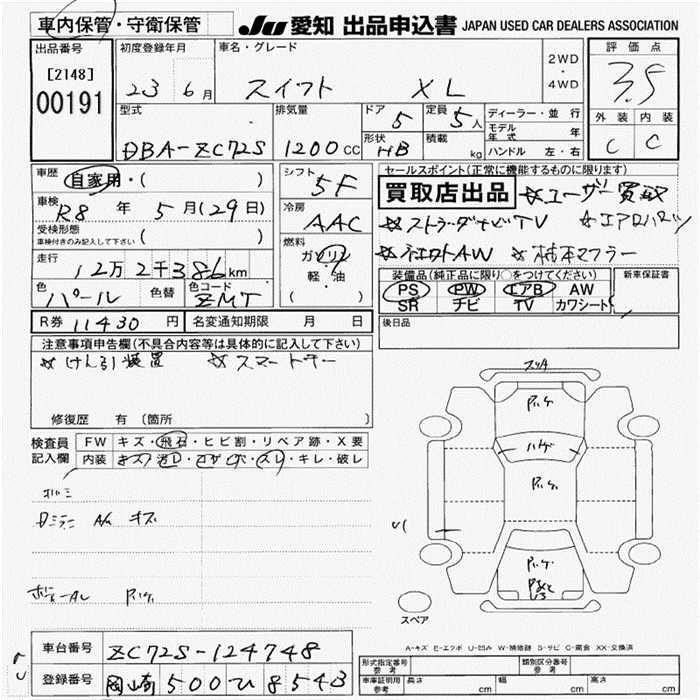 車内保管・守衛保管
JU 愛知 出品申込書 JAPAN USED CAR DEALERS ASSOCIATION
出品番号
[2148]
00191
初度登録年月
23 6月
車名・グレード
スイフト XL
2WD
・
4WD
評価点
3.5
外装 内装
C C
型式
DBA-ZC72S
排気量
1200 CC
ドア 5
形状 HB
定員 5人
積載 kg
ディーラー・並行
モデル年式 年
ハンドル 左・右
車歴 自家用・( )
車検 R8年 5月(29日)
受検形態
車検付きのみ記入して下さい ( )
走行
12万2千386km
色 パール
色替
色コード ZMT
シフト 5F
冷房 AAC
燃料
ガソリン
軽・油
( )
セールスポイント(正常に機能するものに限ります)
買取店出品 ☆ユーザー買取
☆ストラーダナビTV ☆エアロパーツ
AW ☆柿本マフラー
装備品(純正品に限り○をつけてください)
PS PW エアB AW
SR ナビ TV カワシート
新車保証書
後日品
R券 11430円
名変通知期限 月 日
注意事項申告欄(不具合内容等は具体的に記入して下さい)
☆けん引装置 ☆スマートキー
修復歴 有 (箇所 )
検査員記入欄
FW キズ・飛石・ヒビ割・リペア跡・X要
内装 キズ・汚レ・コゲ・穴・スレ・キレ・破レ
A キズ
スリA
ハゲ
スペア
A-キズ E-エクボ U-凹み W-補修跡 S-サビ C-腐食 XX-交換済
車台番号 ZC72S-124748
登録番号 岡崎 500 ひ 8543
形式指定番号 参考
類別区分番号 参考
車庫証明用 参考 長さ cm 幅 cm 高さ cm